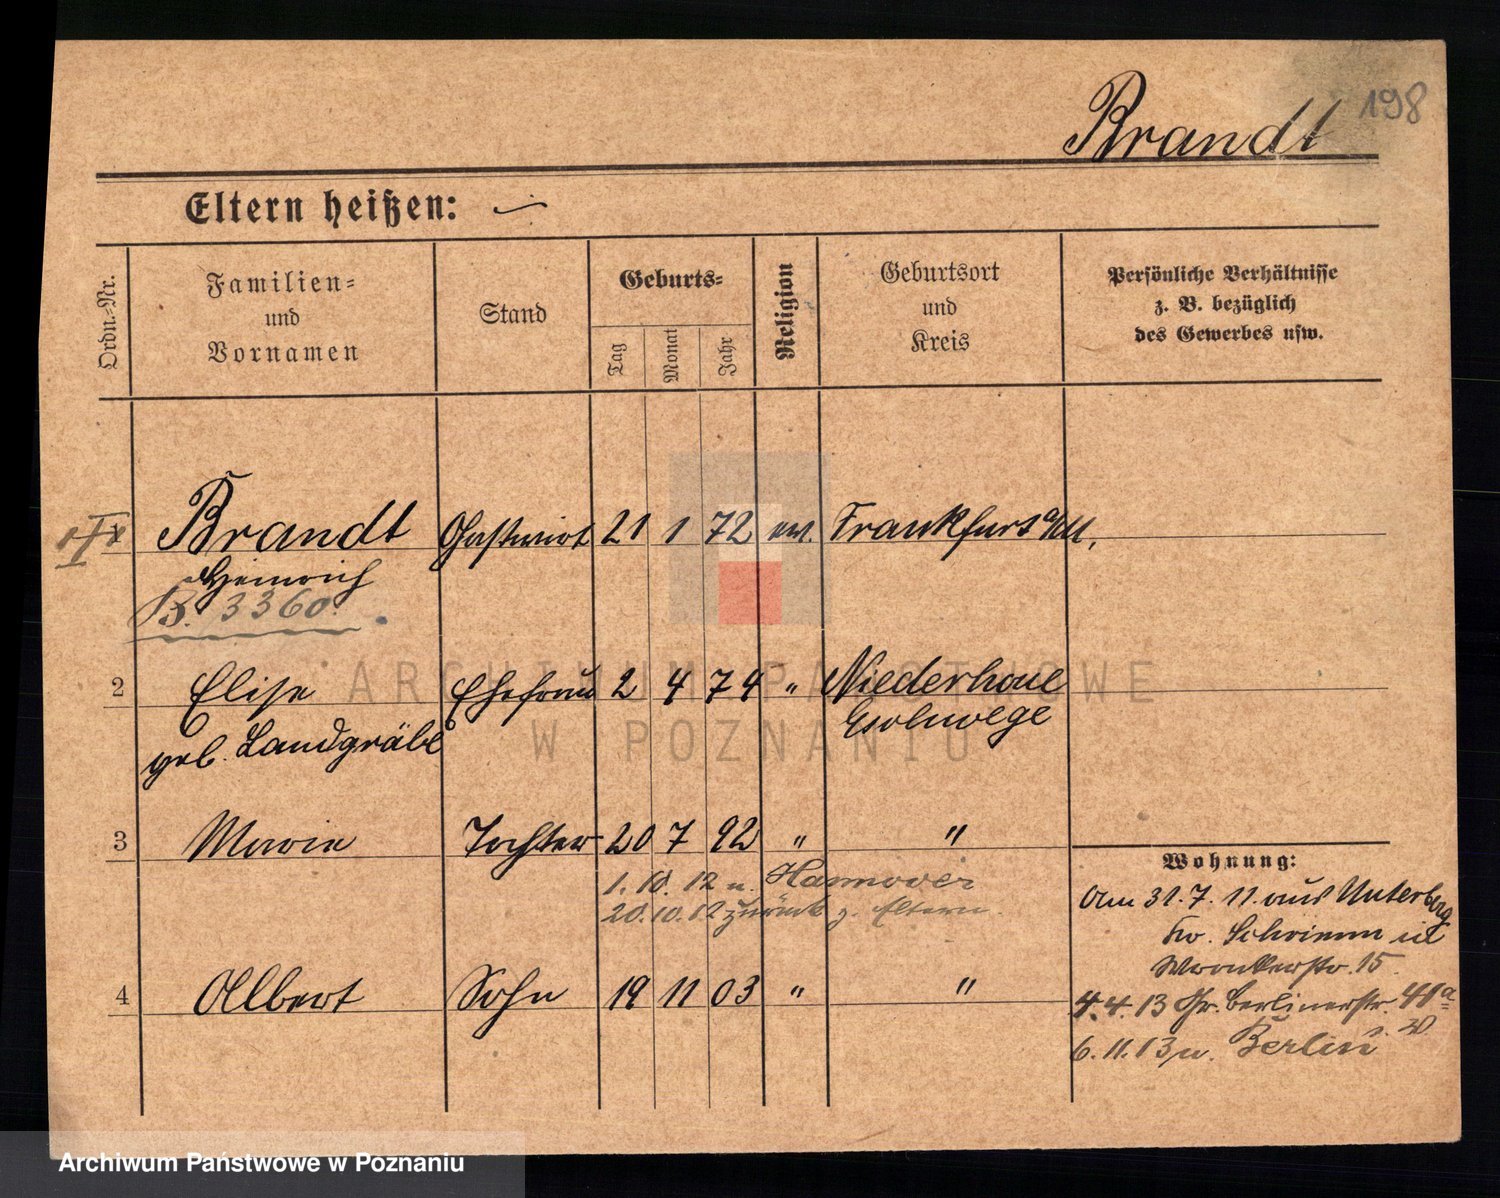 198
Brandt
Eltern heißen: —
Ordn.-Nr.
Familien-
und
Vornamen
Stand
Geburts-
Tag
Monat
Jahr
Religion
Geburtsort
und
Kreis
Persönliche Verhältnisse
z. B. bezüglich
des Gewerbes usw.
Brandt Gastwirt 21 1 72 ev. Frankfurt a/M.
Heinrich
B. 3360.
2 Elise Ehefrau 2 4 74 " Niederhone
geb. Landgräbe Eschwege
3 Marie Tochter 20 7 92 " "
1. 10. 12 n. Hannover
20.10.12 zurück z. Eltern.
4 Albert Sohn 19 11 03 " "
Wohnung:
Am 31.7.11. aus Unterberg
Kr. Schrimm in
Wronkerstr. 15.
4.4.13 Gr. Berlinerstr. 41a
6.11.13 n. Berlin
ARCHIWUM PAŃSTWOWE
W POZNANIU
Archiwum Państwowe w Poznaniu